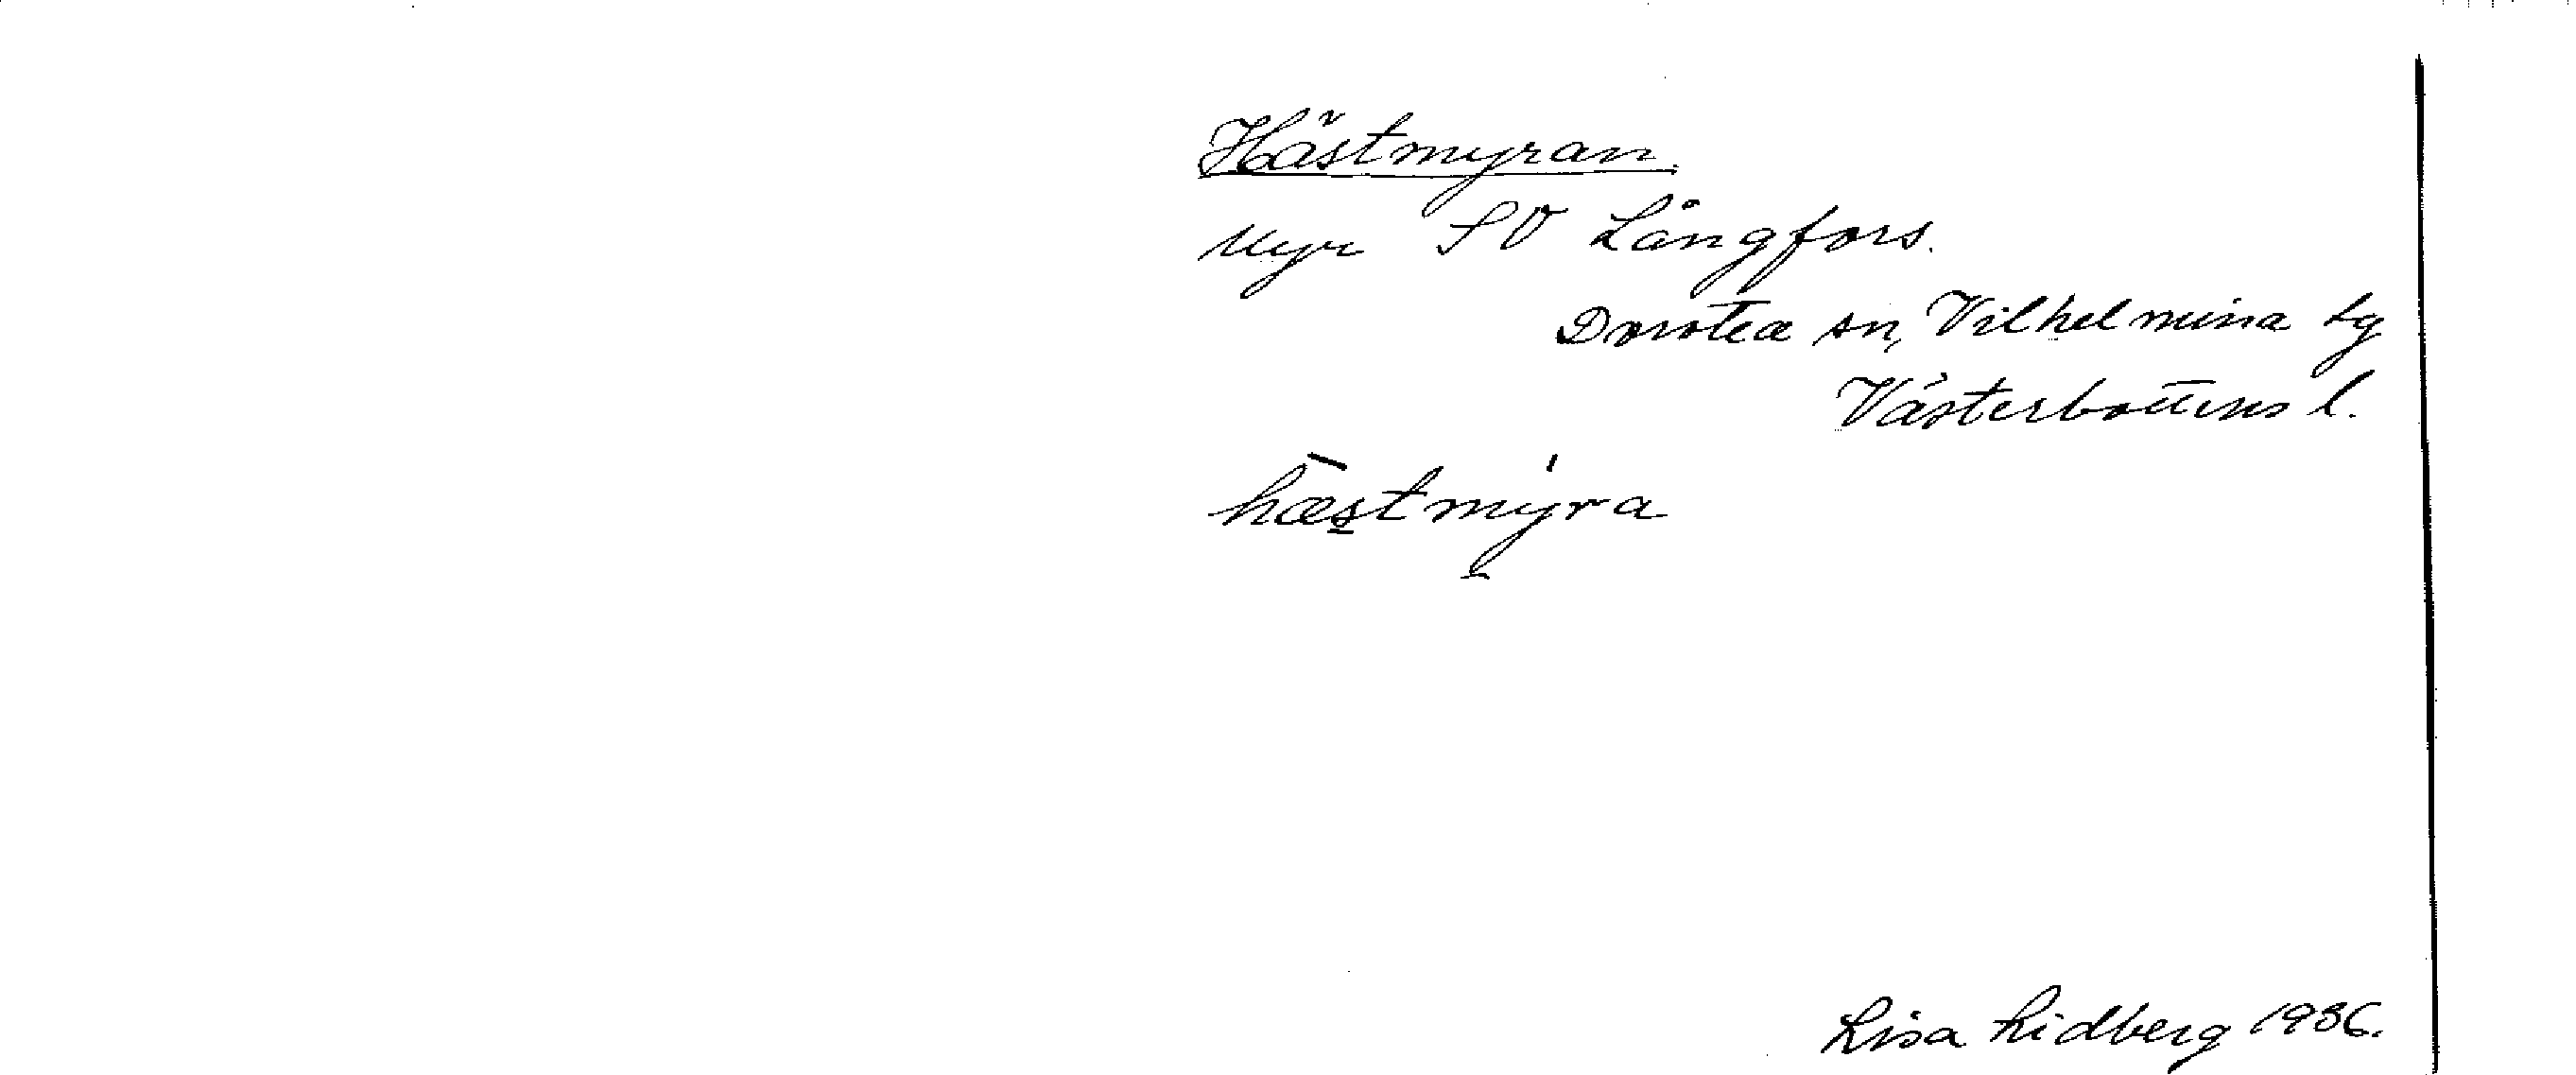 Hästmyran.
Myr SV Långfors.
Dorotea sn, Vilhelmina tg
Västerbottens l.
hæstmyra
Lisa Lidberg 1936.